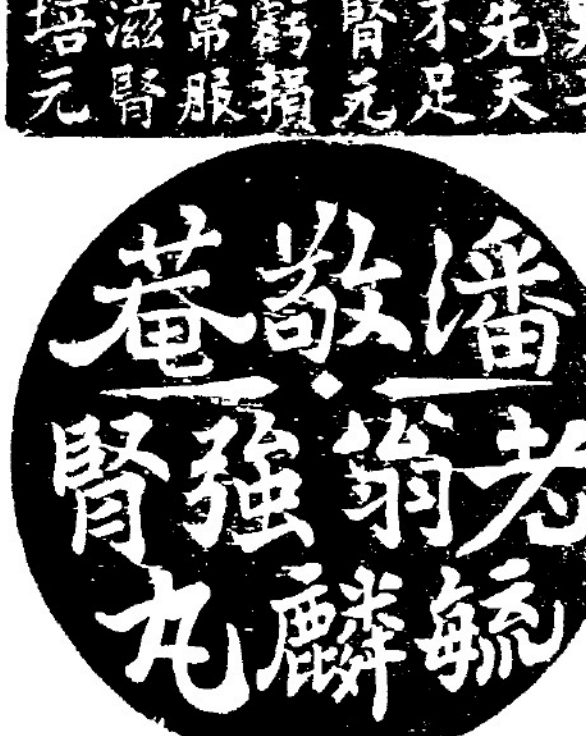 先天
不足
腎元
虧損
常服
滋腎
培元
潘敬菴
老翁強腎
毓麟丸